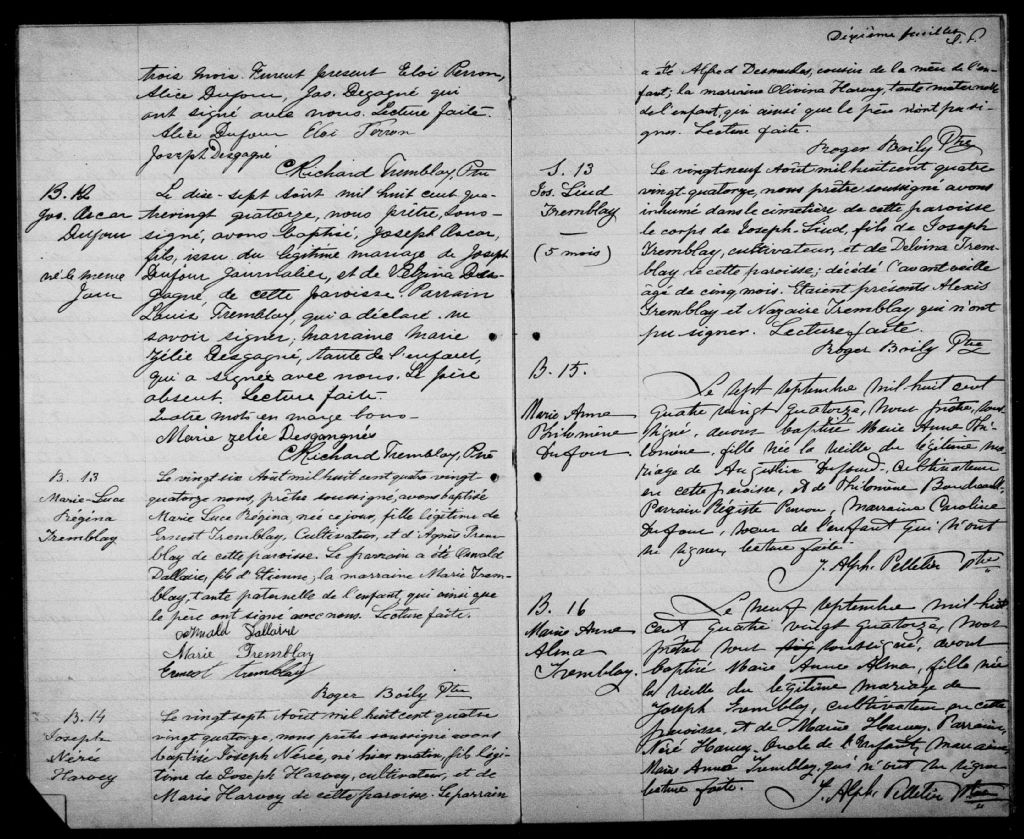 trois mois. Furent present Eloi Perron,
Alice Dufour, Jos. Degagné qui
ont signé avec nous. Lecture faite.
Alice Dufour Eloi Perron
Joseph Desgagné
Richard Tremblay, Ptre
B. 12
Jos. Oscar
Dufour
né le meme
Jour
Le dix-sept Août mil huit cent qua-
trevingt quatorze, nous prêtre, sous-
signé, avons baptisé, Joseph Oscar,
fils, issu du légitime mariage de Joseph
Dufour Journalier, et de Des-
gagné, de cette paroisse. Parrain
Louis Tremblay, qui a déclaré ne
savoir signer, marraine Marie
Zélie Desgagné, tante de l'enfant,
qui a signée avec nous. Le père
absent. Lecture faite.
Quatre mots en marge bons-
Marie Zélie Desgangnés
Richard Tremblay, Ptre
B. 13
Marie-Luce
Régina
Tremblay
Le vingt six Août mil huit cent quatre vingt-
quatorze nous, prêtre soussigné, avons baptisé
Marie Luce Régina, née ce jour, fille légitime de
Ernest Tremblay, Cultivateur, et d'Agnès Trem-
blay de cette paroisse. Le parrain a été Oswald
Dallaire, fils d'Etienne; la marraine Marie Trem-
blay, tante paternelle de l'enfant, qui ainsi que
le père ont signé avec nous. Lecture faite.
Oswald Dallaire
Marie Tremblay
Ernest tremblay
Roger Boily Ptre
B. 14
Joseph
Nérée
Harvey
Le vingt sept Août mil huit cent quatre
vingt quatorze, nous prêtre soussigné avons
baptisé Joseph Nérée, né hier matin, fils légi-
time de Joseph Harvey, cultivateur, et de
Marie Harvey de cette paroisse. Le parrain
Dixième feuillet
a été Alfred Desmeules, cousin de la mère de l'en-
fant; la marraine Olivina Harvey, tante maternelle
de l'enfant, qui ainsi que le père n'ont pu si-
gner. Lecture faite.
Roger Boily Ptre
S. 13
Jos. Liud
Tremblay
—
(5 mois)
Le vingt-neuf Août mil huit cent quatre
vingt-quatorze, nous prêtre soussigné avons
inhumé dans le cimetière de cette paroisse
le corps de Joseph-Liud, fils de Joseph
Tremblay, cultivateur, et de Delvina Trem-
blay de cette paroisse; décédé l'avant veille
âgé de cinq mois. Etaient présents Alexis
Tremblay et Nazaire Tremblay qui n'ont
pu signer. Lecture faite.
Roger Boily Ptre
B. 15.
Marie Anne
Philomène
Dufour
Le sept septembre mil-huit cent
quatre vingt quatorze, nous prêtre, sous
signé, avons baptisé Marie Anne Phi-
lomène, fille née la veille du légitime ma-
riage de Augustin Dufour, Cultivateur
en cette paroisse, et de Philomène Boudreault.
Parrain Régiste Perron, Marraine Caroline
Dufour, soeur de l'enfant qui n'ont
su signer, lecture faite.
J. Alph. Pelletier Ptre
B. 16
Marie Anne
Alma
Tremblay.
Le neuf septembre mil-huit
cent quatre vingt quatorze, nous
prêtre sous soussigné, avons
baptisé Marie Anne Alma, fille née
la veille du légitime mariage de
Joseph Tremblay, cultivateur en cette
paroisse, et de Marie Harvey. Parrain,
Néré Harvey Oncle de l'Enfant, marraine
Marie Anne Tremblay, qui n'ont su signer
lecture faite.
J. Alph. Pelletier Ptre